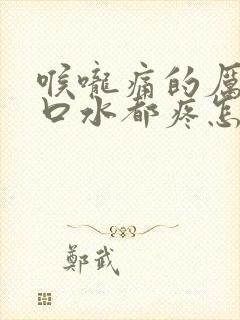 喉嚨痛的厲
口水都疼怎
鄭武